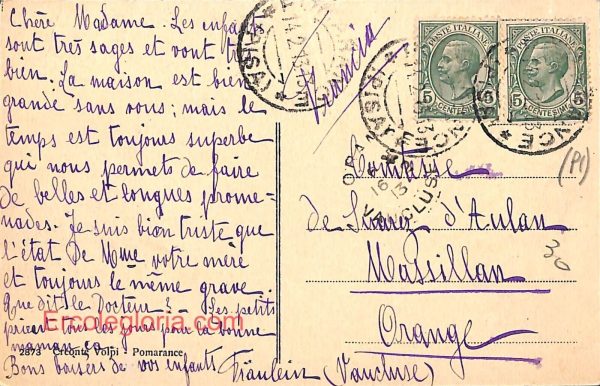 Chère Madame. Les enfants
sont très sages et vont très
bien. La maison est bien
grande sans vous; mais le
temps est toujours superbe
qui nous permets de faire
de belles et longues prome-
nades. Je suis bien triste que
l'état de Mme votre mère
est toujours le même grave.
Que dit le Docteur? - Les petits
prient tous les jours pour la bonne
maman
Bons baisers de vos enfants
Fräulein
Ercolegloria.com
2873 Creonte Volpi - Pomarance
Francia
POSTE ITALIANE
5 CENTESIMI 5
POSTE ITALIANE
5 CENTESIMI 5
ORANGE
16
13
VAUCLUSE
Comtesse
de Suarez d'Aulan
Massillan
Orange
(Vaucluse)
(PI)
30